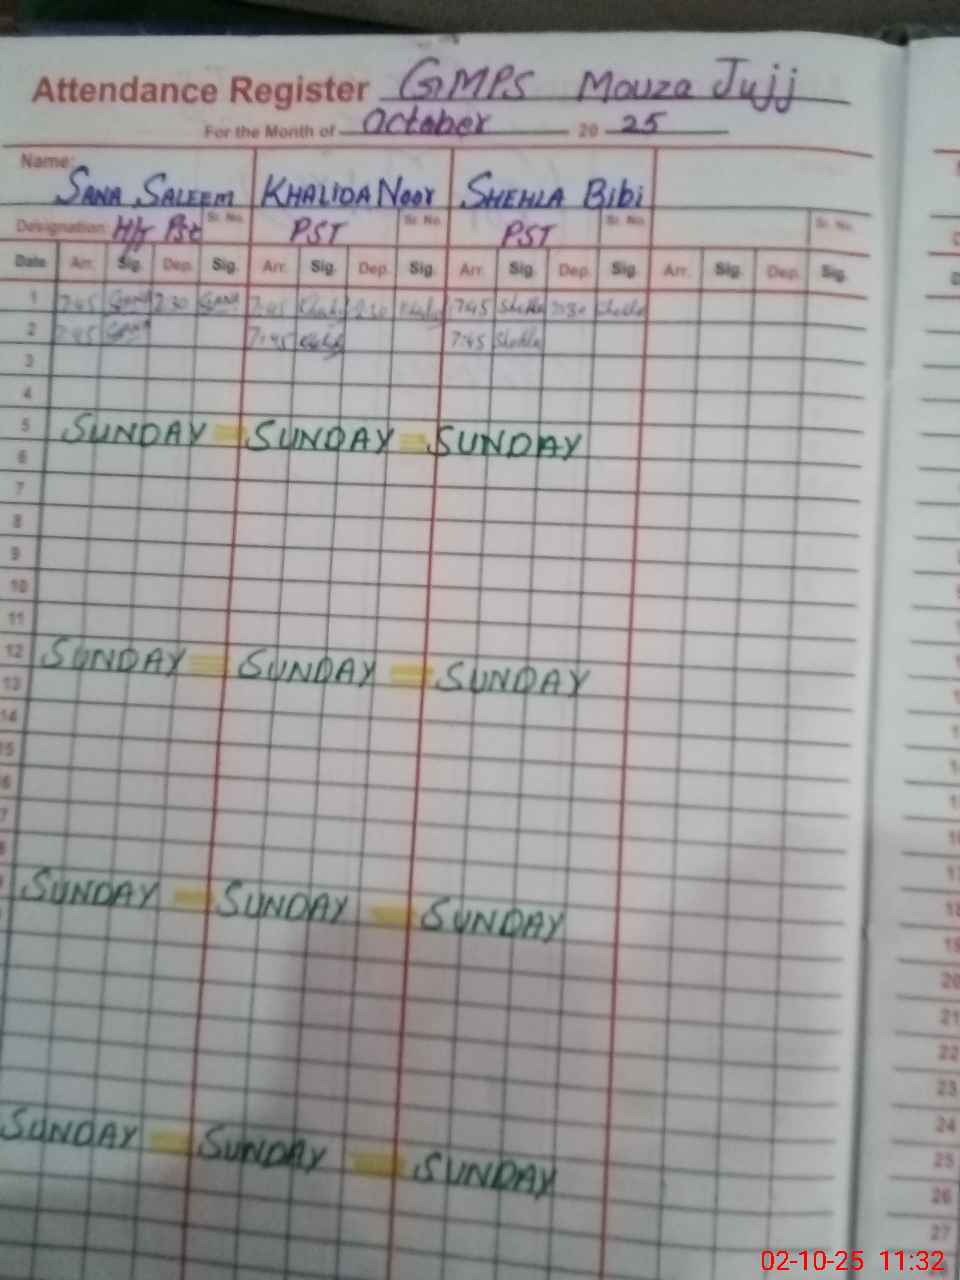 Attendance Register GMPS Mouza Jujj
For the Month of October 20 25
Name: SANA SALEEM KHALIDA Noor SHEHLA BiBi
Designation: Sr. No. PST Sr. No. PST Sr. No. Sr. No.
Date Arr. Sig. Dep. Sig. Arr. Sig. Dep. Sig. Arr. Sig. Dep. Sig. Arr. Sig. Dep. Sig.
1 7:45 SANA 2:30 SANA 7:45 2:30 7:45 Shehla 2:30 Shehla
2 7:45 SANA 7:45 7:45 Shehla
3
4
5 SUNDAY = SUNDAY = SUNDAY
6
7
8
9
10
11
12 SUNDAY = SUNDAY = SUNDAY
13
14
15
SUNDAY = SUNDAY = SUNDAY
SUNDAY = SUNDAY = SUNDAY
18
19
20
21
22
23
24
25
26
27
02-10-25 11:32